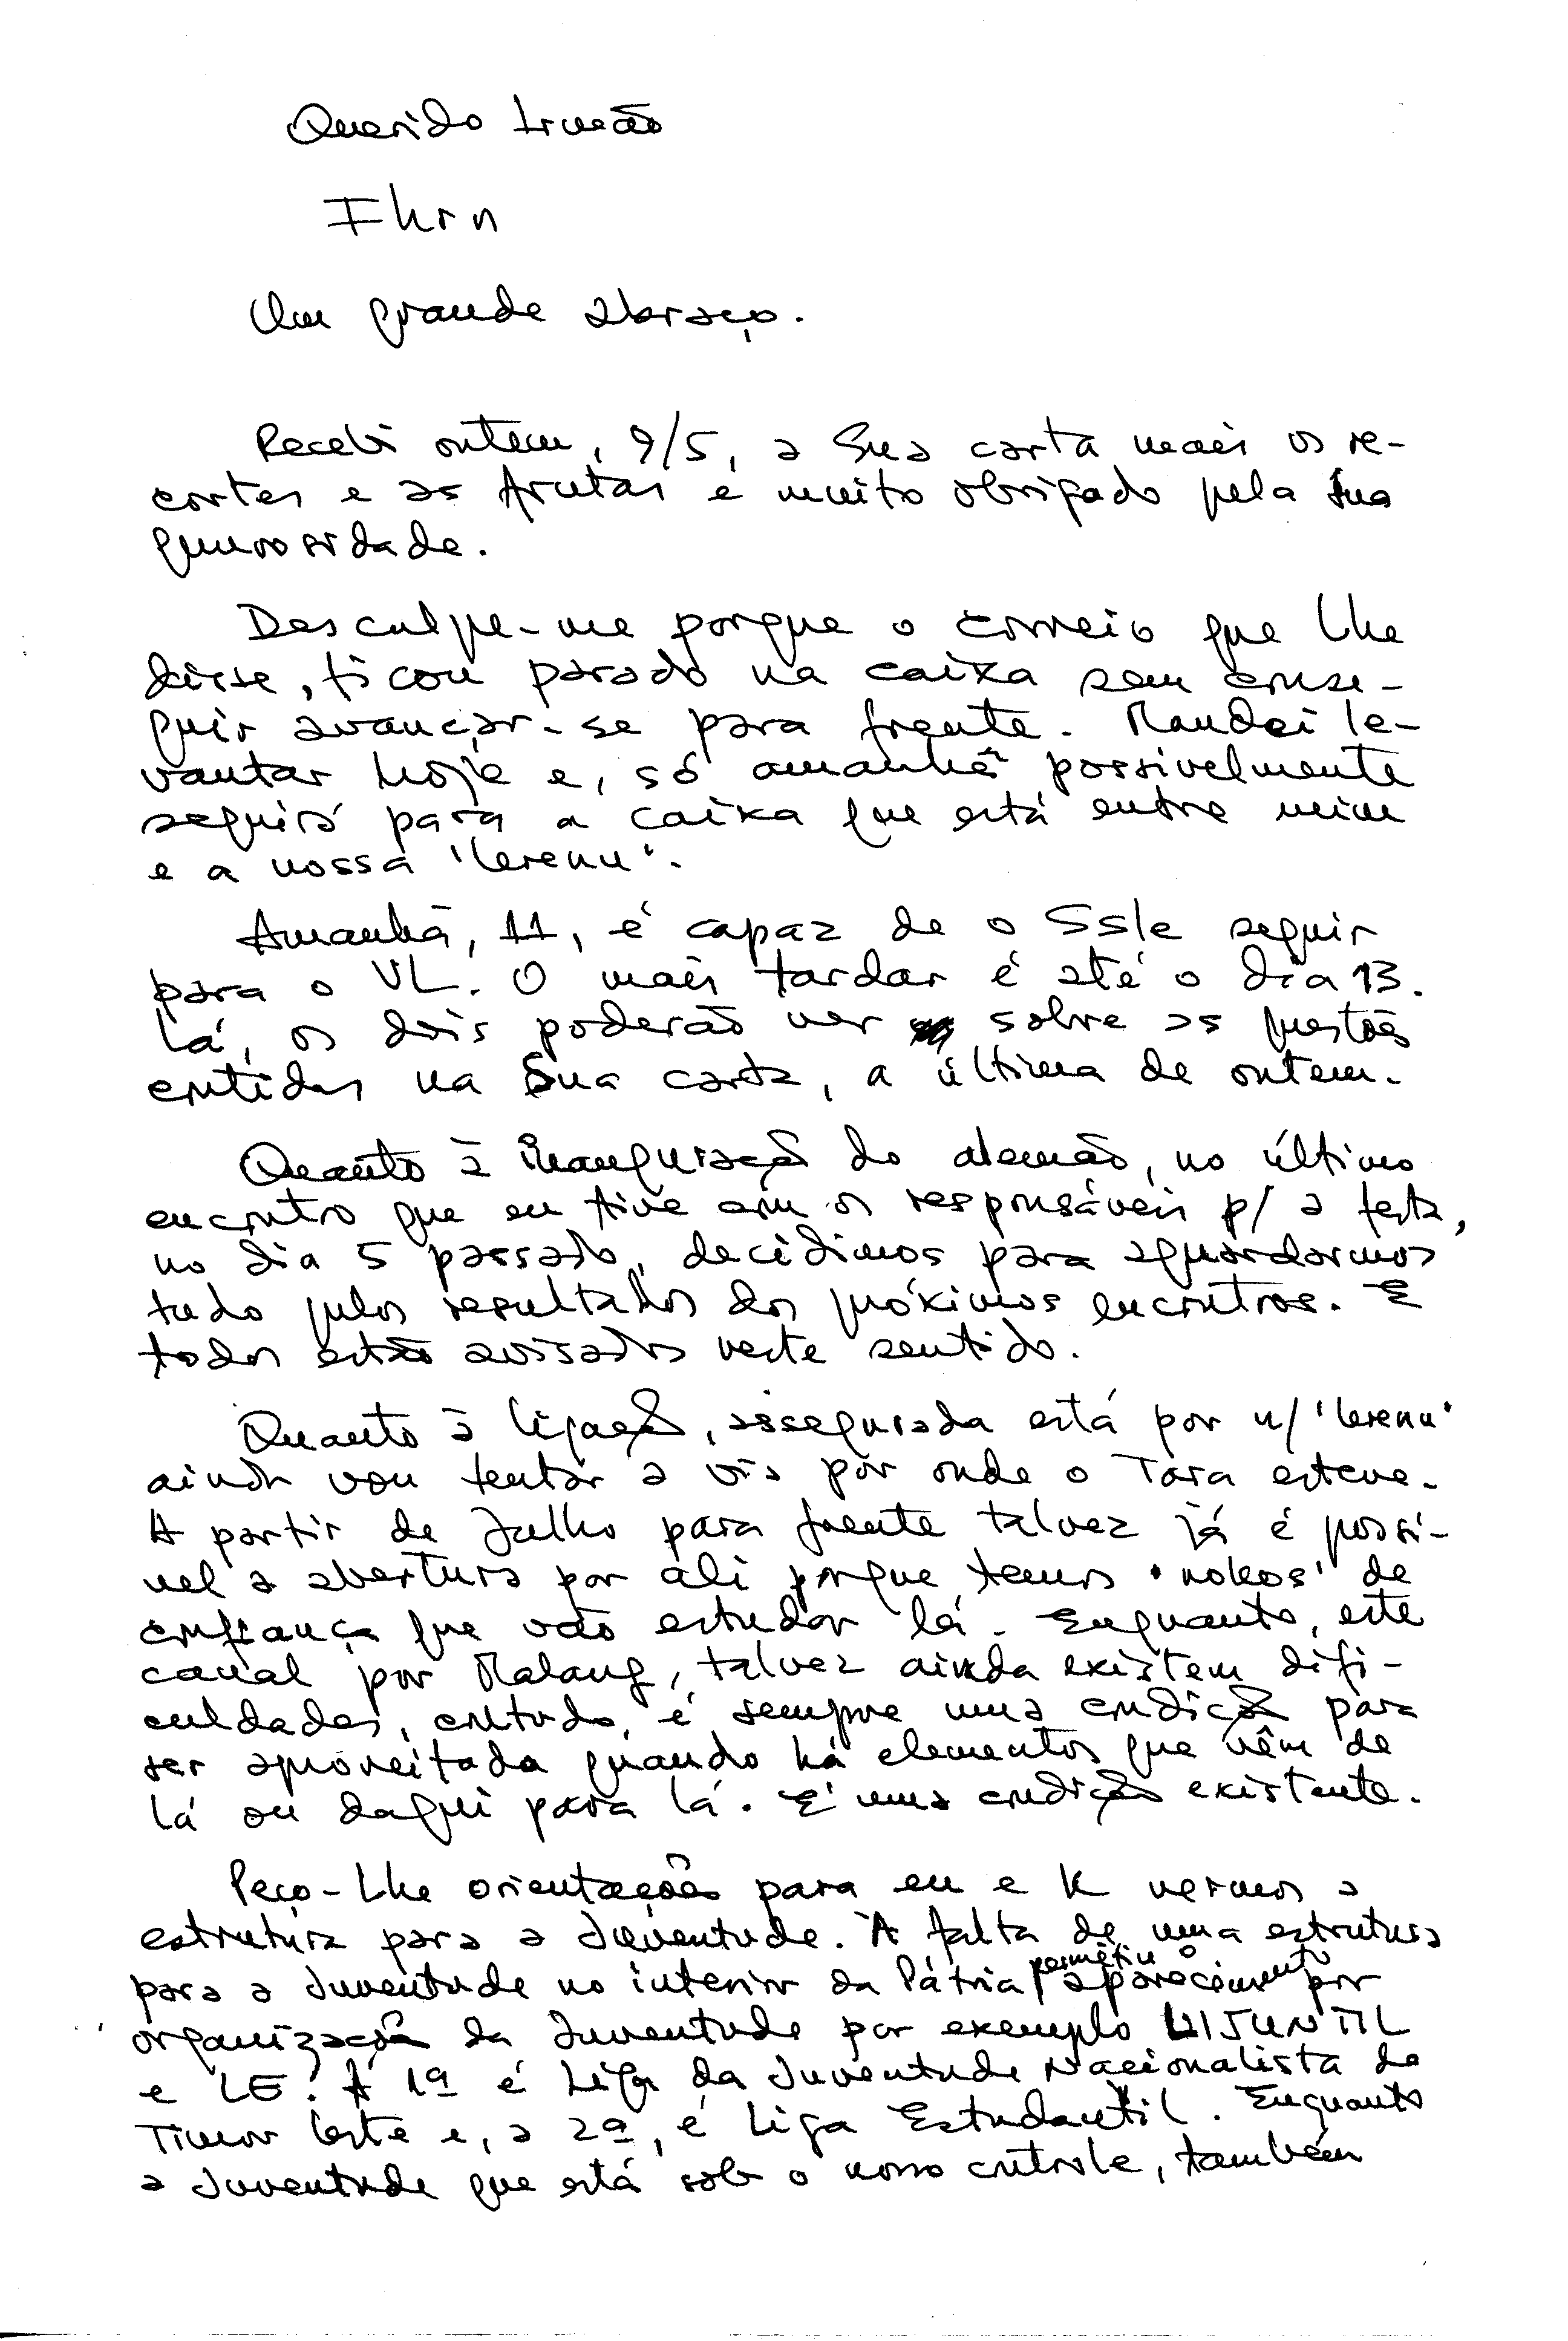 Querido Irmão
Ihrn
Um grande abraço.
Recebi ontem, 9/5, a Sua carta mais os re-
cortes e as frutas e muito obrigado pela Sua
generosidade.
Desculpe-me porque o correio que Lhe
disse, ficou parado na caixa sem conse-
guir avançar-se para frente. Mandei le-
vantar hoje e, só amanhã possivelmente
seguirá para a caixa que está entre mim
e a nossa 'lerenu'.
Amanhã, 11, é capaz de o Ssle seguir
para o VL. O mais tardar é até o dia 13.
Lá, os dois poderão ver sobre as questões
contidas na Sua carta, a última de ontem.
Quanto à inauguração do alemão, no último
encontro que eu tive com os responsáveis p/ a festa,
no dia 5 passado, decidimos para aguardarmos
tudo pelos resultados dos próximos encontros. E
todos estão avisados neste sentido.
Quanto à ligação, assegurada está por n/ 'lerenu'
ainda vou tentar a via por onde o Tara esteve.
A partir de Julho para frente talvez já é possí-
vel a abertura por ali porque temos 'nokos' de
confiança que vão estudar lá. Enquanto, este
canal por Malang, talvez ainda existem difi-
culdades, contudo, é sempre uma condição para
ser aproveitada quando há elementos que vêm de
lá ou daqui para lá. É uma condição existente.
Peço-Lhe orientações para eu e K vermos a
estrutura para a Juventude. A falta de uma estrutura
para a Juventude no interior da Pátria permitiu o aparecimento por
organização da Juventude por exemplo LIJUNTIL
e LE. A 1ª é Liga da Juventude Nacionalista de
Timor Leste e, a 2ª, é Liga Estudantil. Enquanto
a Juventude que está sob o nosso controle, também